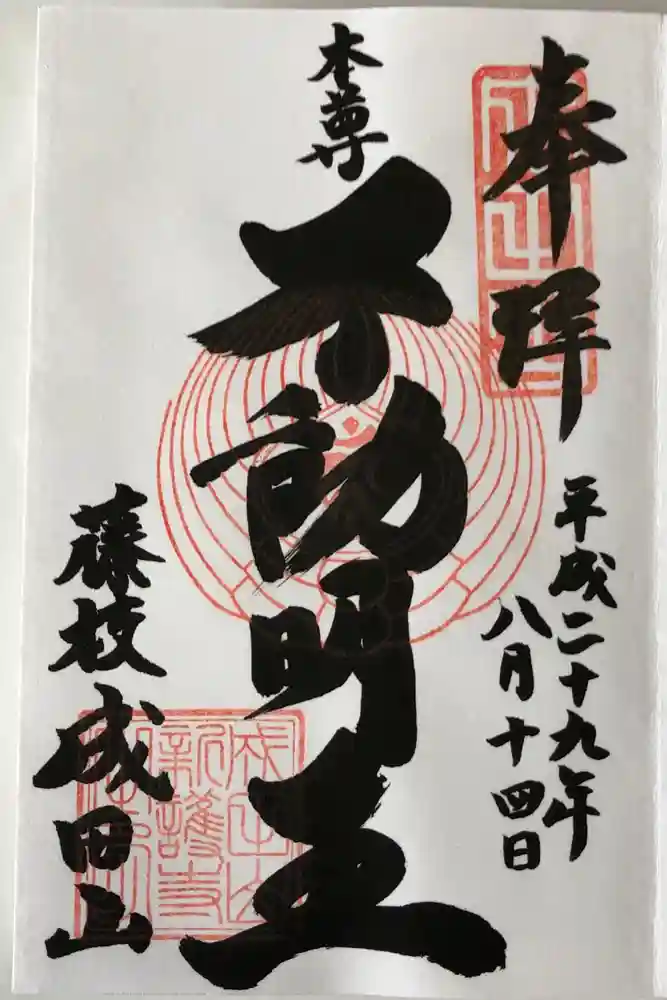 奉拝
平成二十九年
八月十四日
本尊
不動明王
藤枝成田山